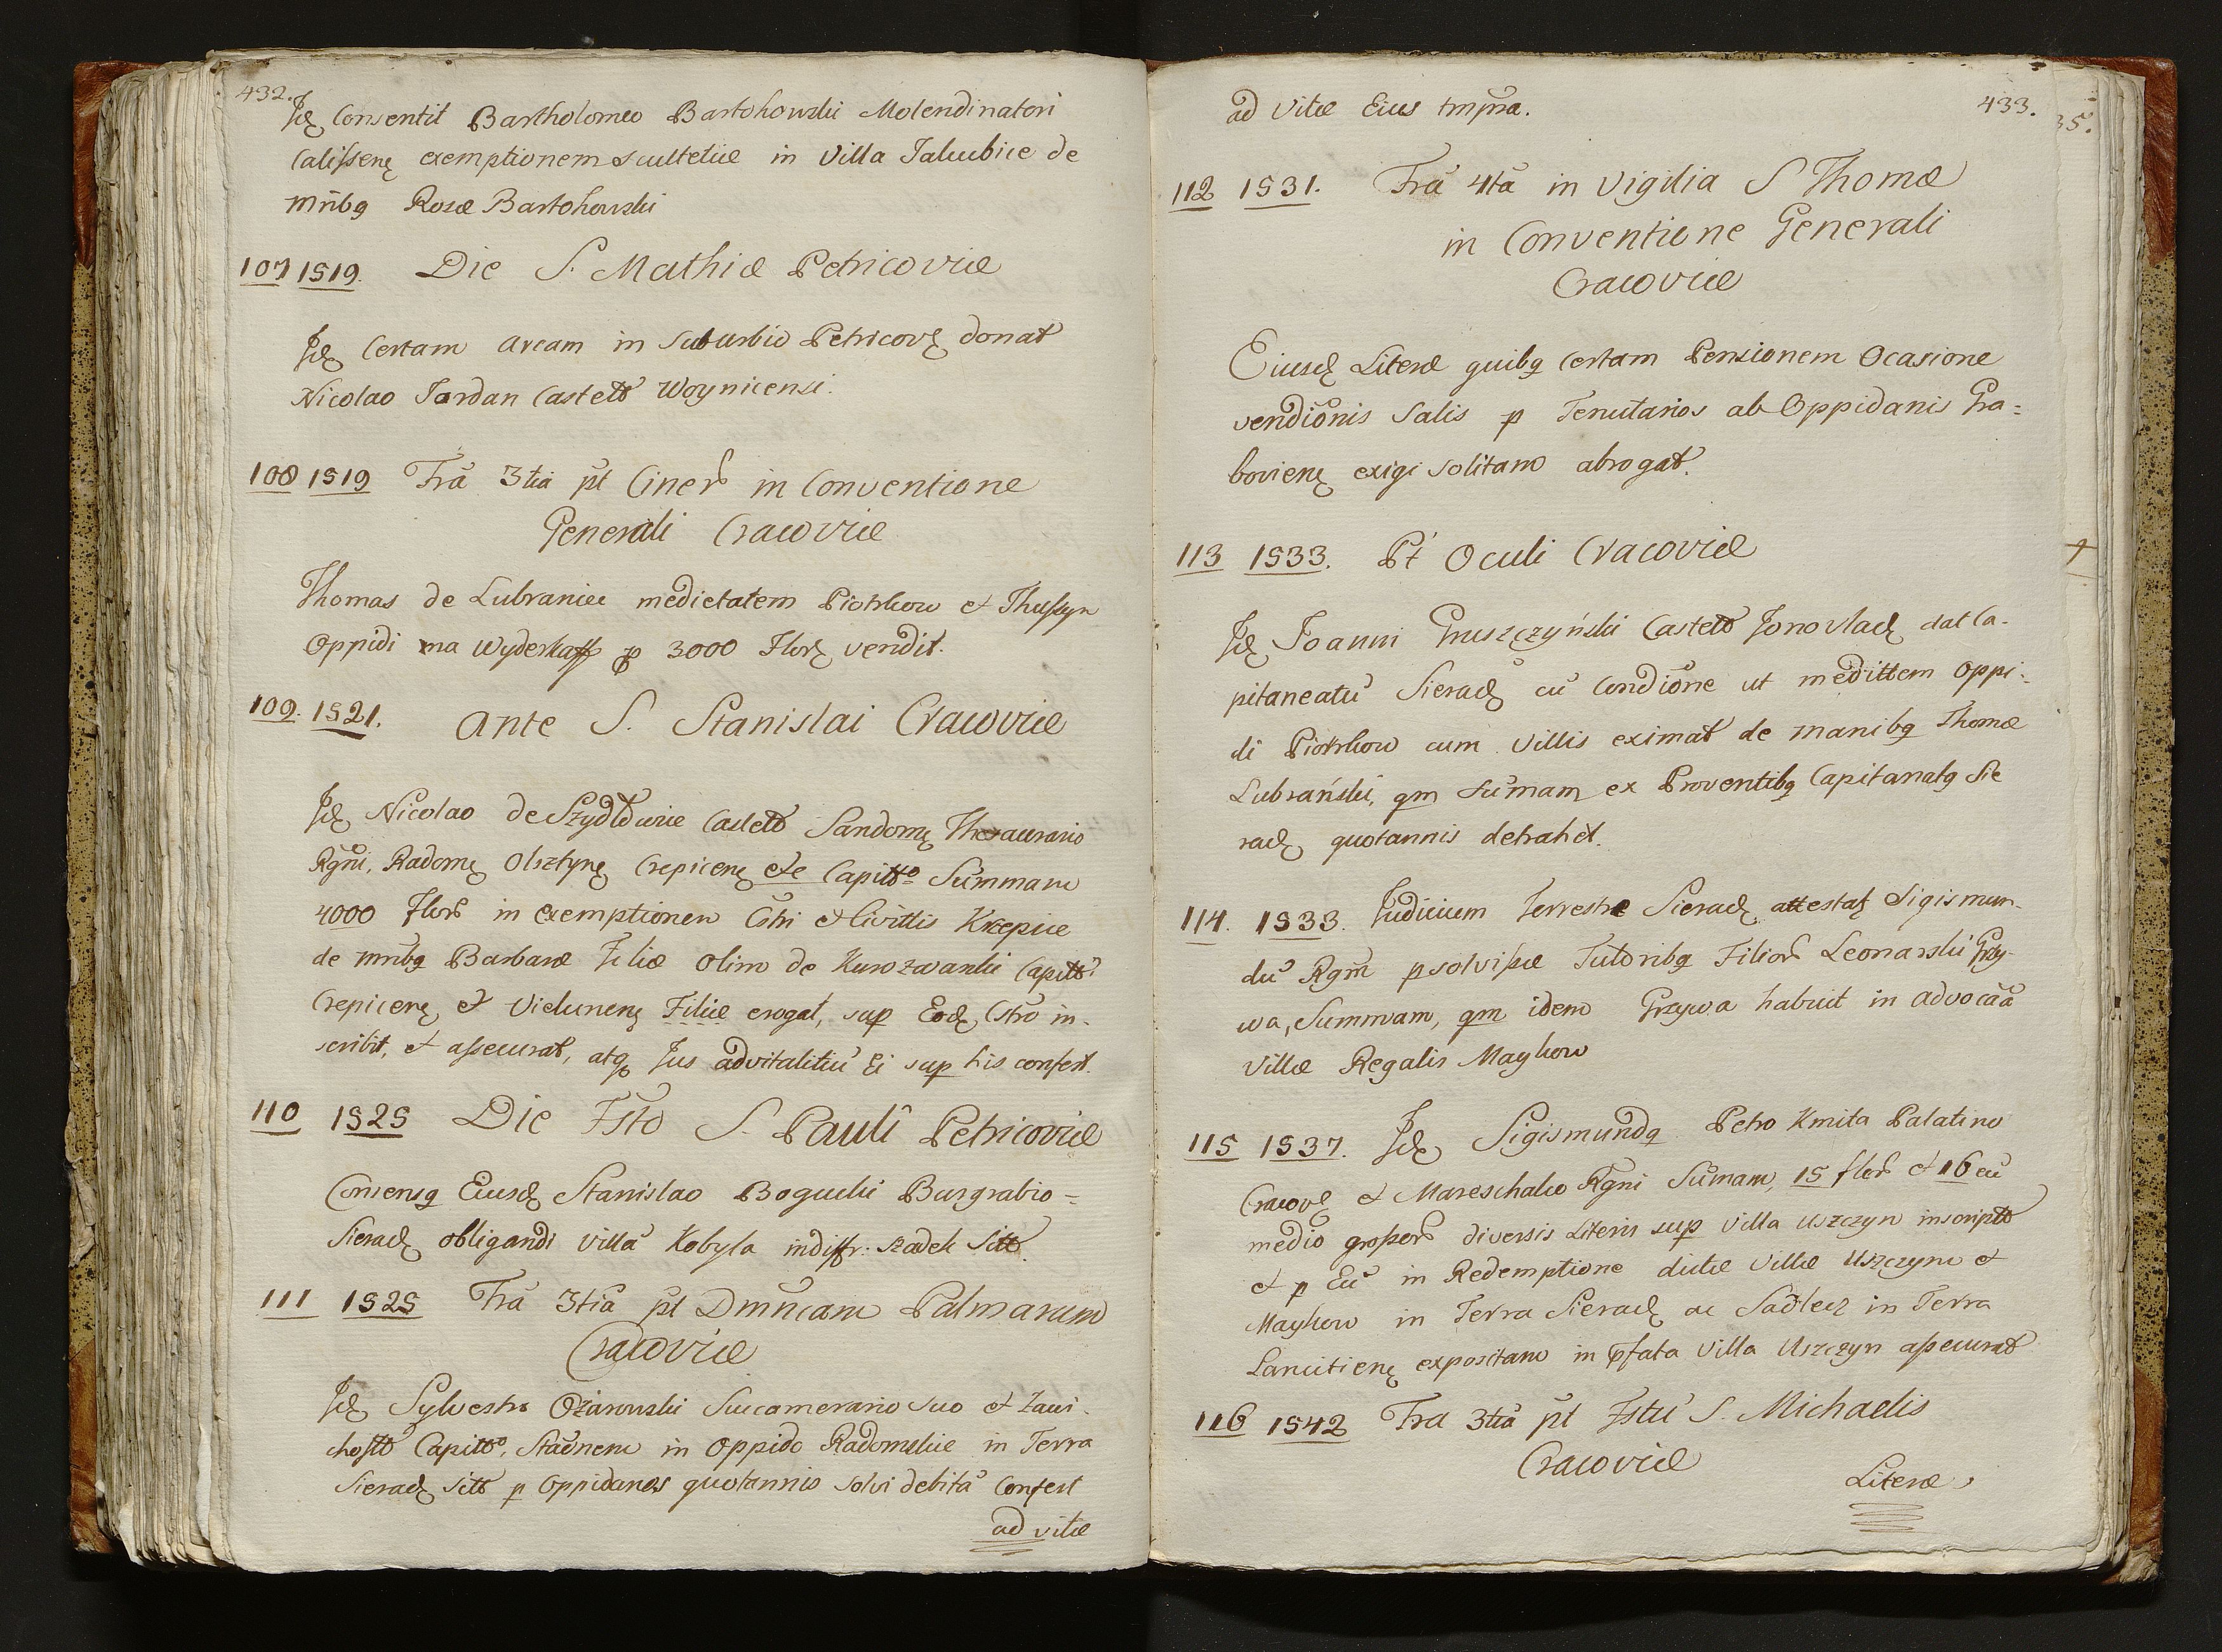 432.
Id. Consentit Bartholomeo Bartohowski Molendinatori
Calissenꝫ exemptionem scultetiæ in Villa Jakubice de
mñbq Rosæ Bartohowski
107 1519. Die S. Mathiæ Petricoviæ
Id. Certam Aream in Suburbio Petricovꝫ donat
Nicolao Jordan Castello Woynicensi.
108 1519 Fr̃a 3tia p̃t Ciner̃ in Conventione
Generali Cracoviæ
Thomas de Lubraniec medietatem Piotrkow et Thussyn
Oppidi na Wyderkaff p 3000 Florꝫ vendit.
109. 1521. Ante S. Stanislai Cracoviæ
Id. Nicolao de Szydłowie Castello Sandomꝫ Thesaurario
Rgñi, Radomꝫ Olsztynꝫ Crepicenꝫ etc Capitto Summam
4000 Flor̃ in exemptionem C̃stri et Civittis Krzepice
de mñbq Barbaræ Filiæ olim de Kurozwanki Capitto
Crepicenꝫ et Vielunenꝫ Filiæ erogat, sup Eodꝫ C̃stro in-
scribit, et assecurat, atqꝫ Jus advitalitiũ Ei sup his confert.
110 1525 Die F̃sto S. Pauli Petricoviæ
Consensq Eiusdꝫ Stanislao Boguchi Burgrabio=
Sieradꝫ obligandi villã Kobyla indistr: Szadek Sitt
111 1525 Fr̃a 3tiã p̃t Dmñcam Palmarum
Cracoviæ
Id. Sylvestro Ożarowski Succamerario suo et Zawi-
chostt Capitto, Stac̃nem in Oppido Radomskie in Terra
Sieradꝫ sitt p Oppidanos quotannis solvi debitã Confert
ad vitæ
433.
35.
ad Vitæ Eius tmp̃ra.
112 1531. Fr̃a 4tã in Vigilia S Thomæ
in Conventione Generali
Cracoviæ
Eiusdꝫ Literæ quibq certam Pensionem Ocasione
vendic̃onis Salis p Tenutarios ab Oppidanis Gra=
bovienꝫ exigi solitam abrogat.
113 1533. Pt Oculi Cracoviæ
Id. Joanni Gruszczyński Castello Jonovladꝫ dat Ca-
pitaneatũ Sieradꝫ cũ Condic̃one ut medittem oppi-
di Piotrkow cum Villis eximat de manibq Thomæ
Lubrański, qm sum̃am ex Proventibq Capitanatq Sie
radꝫ quotannis detrahet.
114. 1533. Judicium Terrestre Sieradꝫ attestatꝫ Sigismun-
dũ Rgm̃ psolvisse Tutoribq Filior̃ Leonarski Grzy-
wa, Summam, qm idem Grzywa habuit in advocãa
Villæ Regalis Maykow
115 1537. Id. Sigismundq Petro Kmita Palatino
Cracovꝫ et Mareschalco Rgñi Sum̃am, 15 flor̃ et 16 cũ
medio grossor̃ diversis Literis sup Villa Uszczyn inscriptt
et p Eũ in Redemptione dictæ Villæ Uszczyn et
Maykow in Terra Sieradꝫ ac Sadlecz in Terra
Lancitienꝫ expositam in p̃fata Villa Uszczyn assecurat
116 1542 Fra 3tiã p̃t Fstũ S. Michaelis
Cracoviæ
Literæ